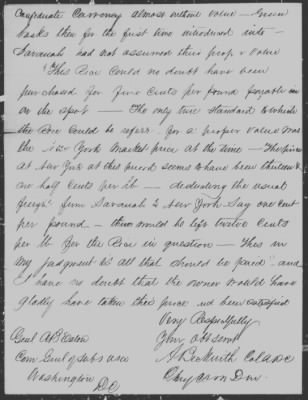 Confederate Currency almost without value — Green
backs then for the first time introduced into
Savannah had not assumed their proper value
This Rice could no doubt have been
purchased for five cents per pound payable in
on the spot — The only true standard to which
the Rice could be referred for a proper value was
the New York market price at the time — The price
at New York at this period seems to have been thirteen &
one half cents per lb — deducting the usual
freight from Savannah to New York say one cent
per pound — there would be left twelve cents
per lb for the Rice in question — This in
my judgment is all that should be paid and
I have no doubt that the owner would have
gladly have taken this price and been satisfied
Very Respectfully
Your obt servt
Genl A B Eaton
A Beckwith Col ADC
Com Genl of Subs USA
Washington
DC